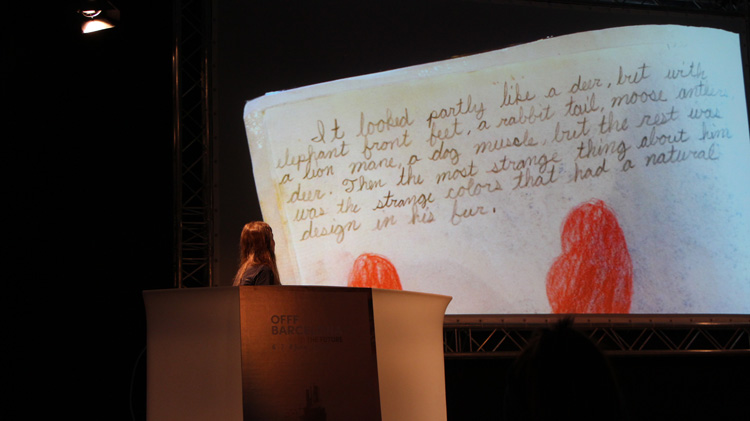 It looked partly like a deer, but with
elephant front feet, a rabbit tail, moose antlers,
a lion mane, a dog mussle, but the rest was
deer. Then the most strange thing about him
was the strange colors that had a natural
design in his fur.
OFFF